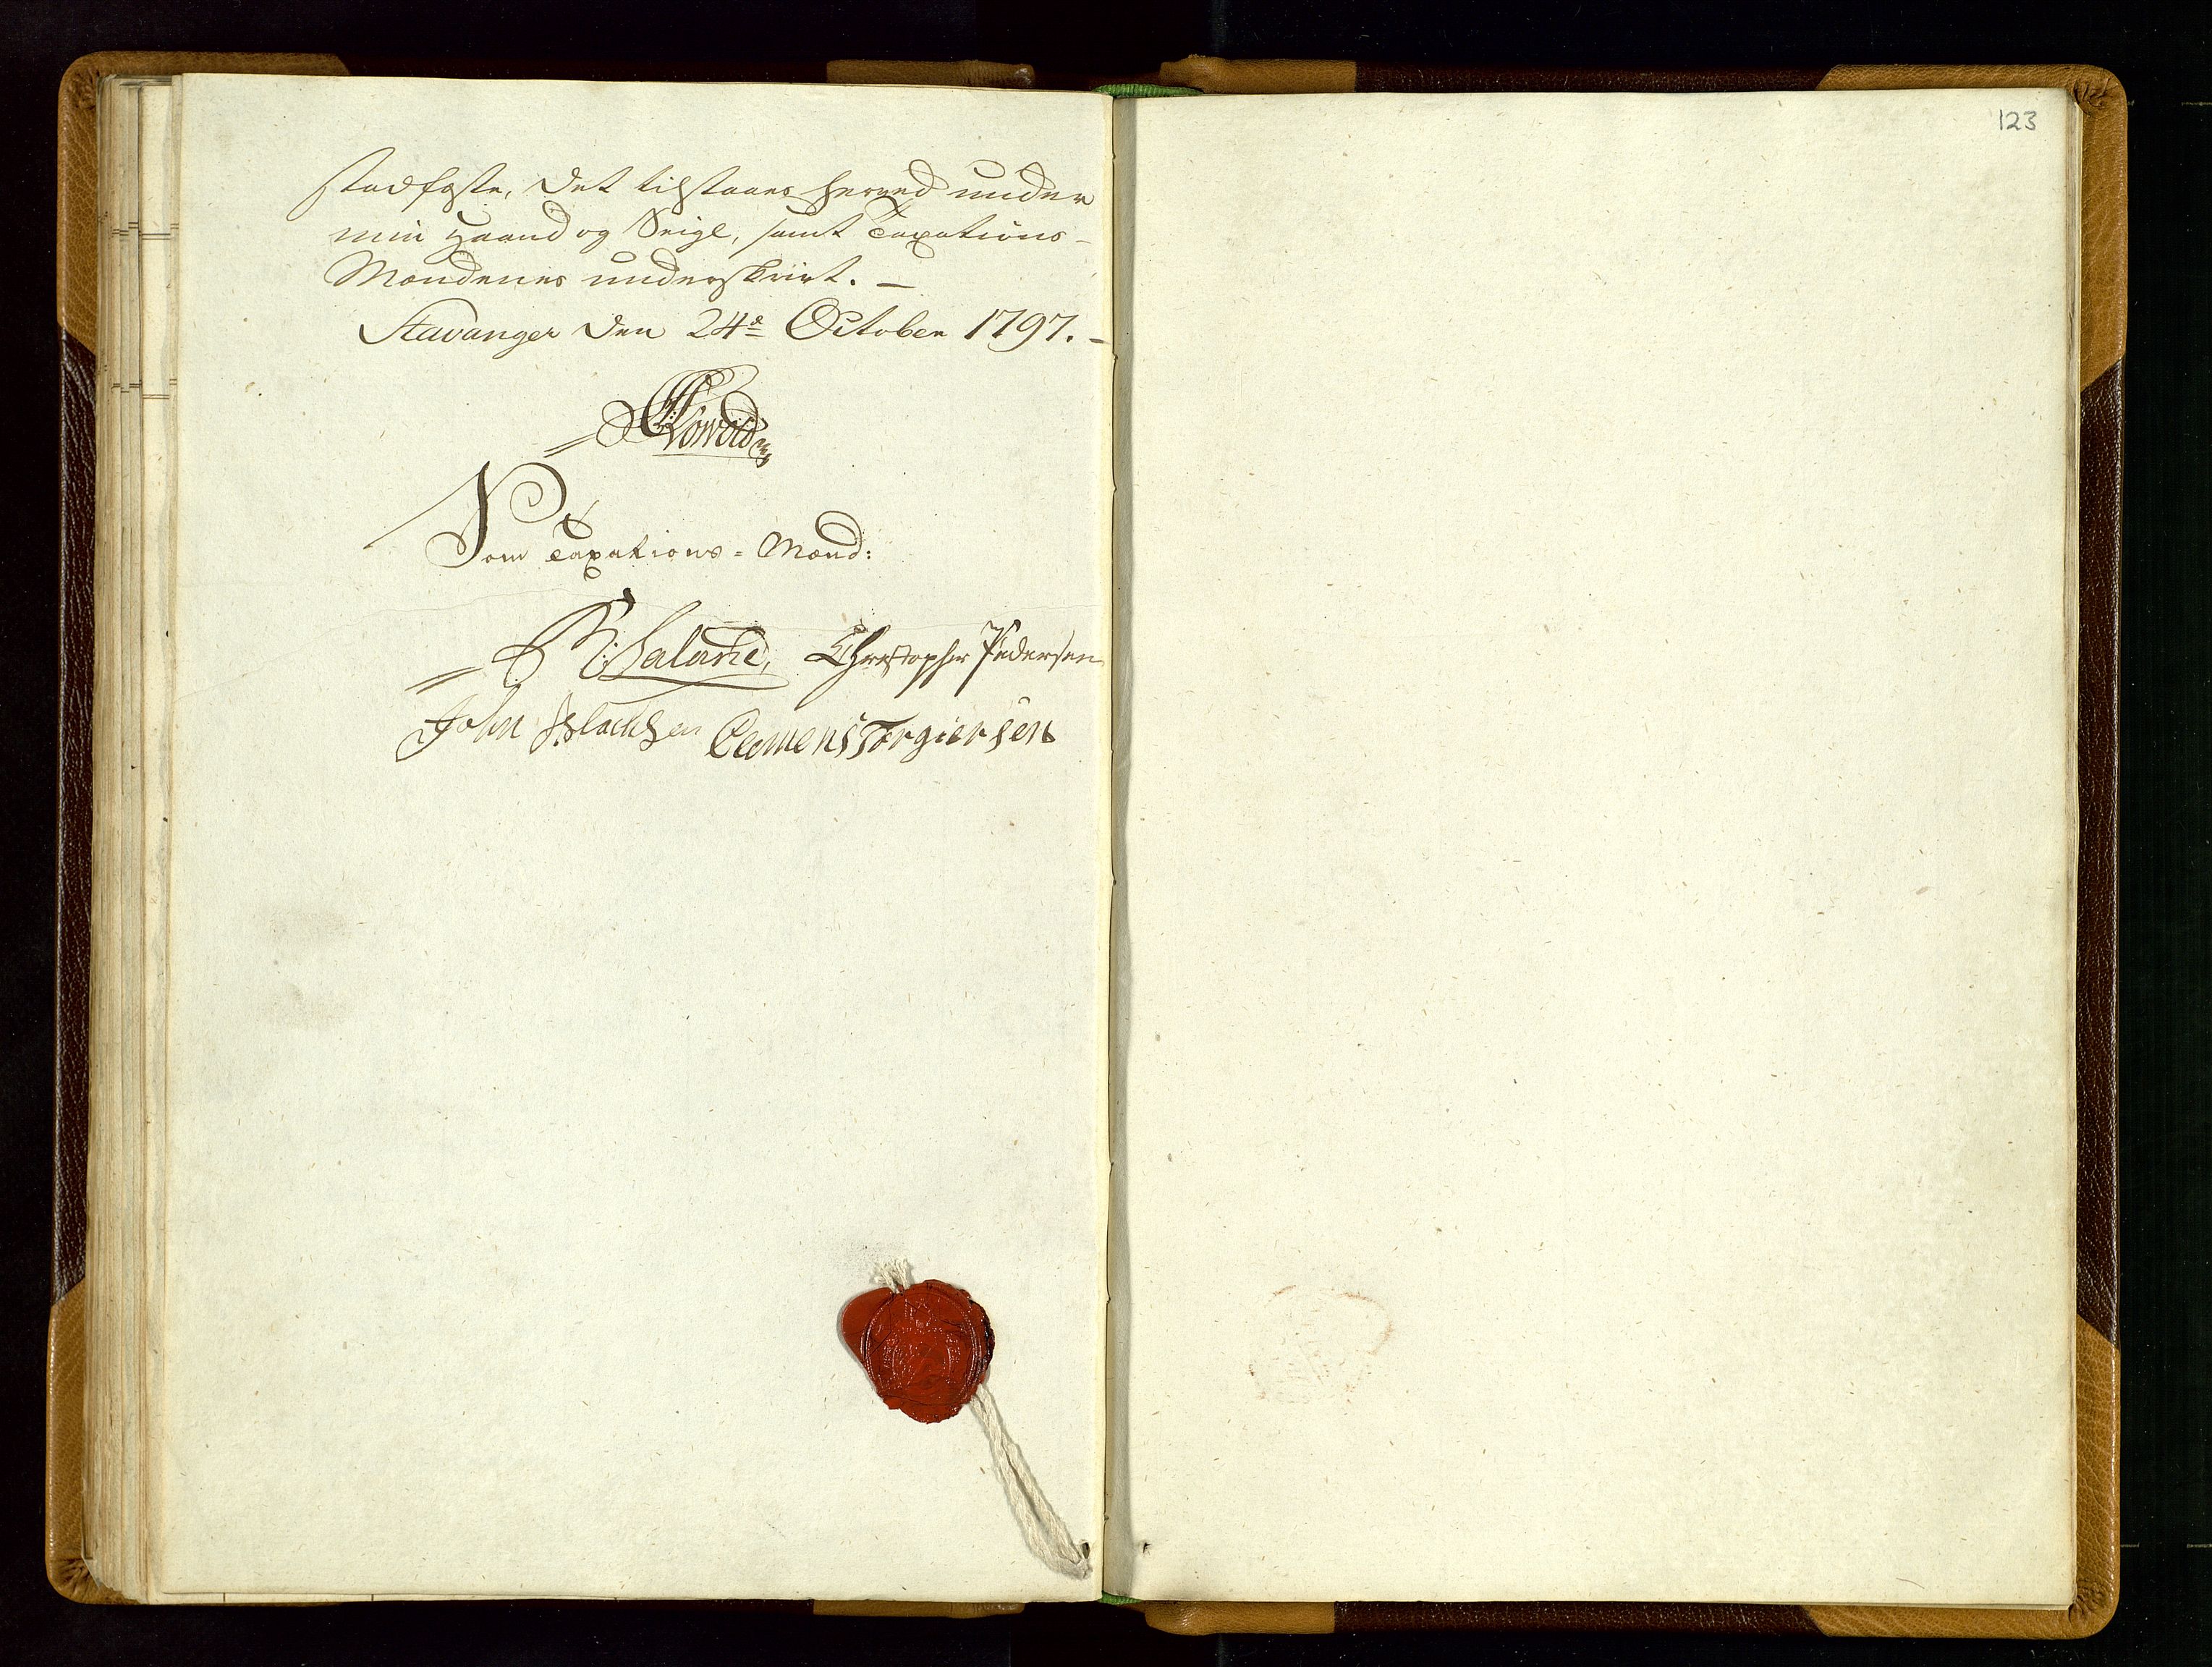 stadfæste, det tilstaaes herved under
min Haand og Seigl, samt Taxations-
Mændenes underskrivt. –
Stavanger den 24de October 1797. –
Som Taxations = Mænd:
Christopher Pedersen
John
Clemens Torgiersen
123